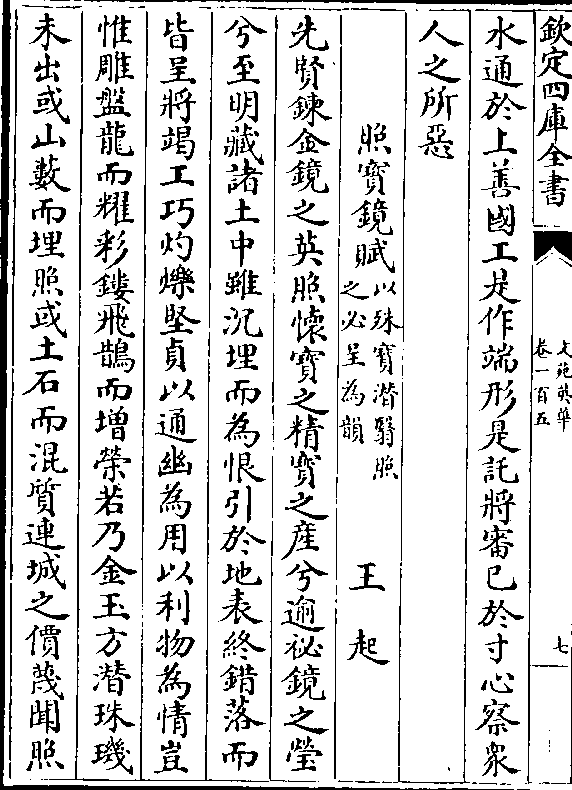 欽定四庫全書
文苑英華
卷一百五
七
水通於上善國工是作端形是託將審已於寸心察衆
人之所惡
照寶鏡賦以珠寶潜翳照之必呈為韻
王起
先賢鍊金鏡之英照懷寶之精寳之産兮逾祕鏡之瑩
兮至明藏諸土中雖沉埋而為恨引於地表終錯落而
皆呈將竭工巧灼爍堅貞以通幽為用以利物為情豈
惟雕盤龍而耀彩鏤飛鵲而增榮若乃金玉方潜珠璣
未出或山藪而埋照或土石而混質連城之價蔑聞照